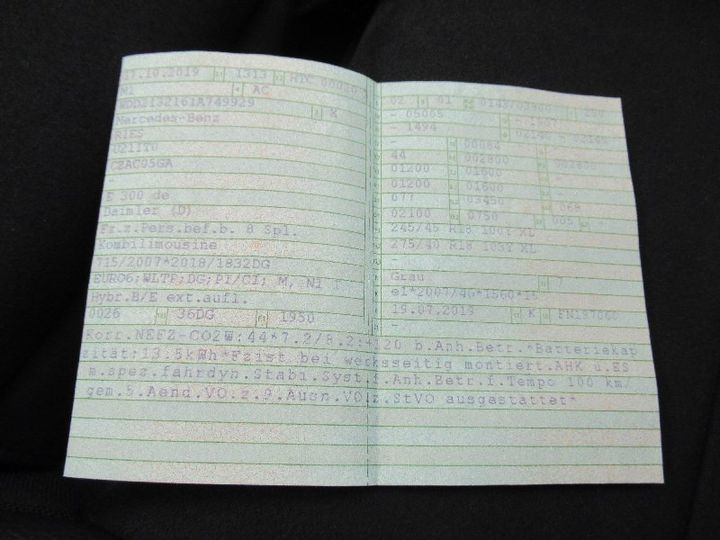 17.10.2019 1313 HTC 00010
M1 AC
WDD2132161A749929 X
Mercedes-Benz
RIES
U21IT0
CZAC05GA
E 300 de
Daimler (D)
Fz.z.Pers.bef.b. 8 Spl.
Kombilimousine
715/2007*2018/1832DG
EURO6;WLTP;DG;PI/CI; M, N1 I
Hybr.B/E ext.aufl.
0026 36DG 1950
02 01 0143/03800 250
- 05065
- 1494
- 00084
44 002800
01200 01600
01200 01600
077 03450 068
02100 0750 085 -
245/45 R18 100Y XL
275/40 R18 103Y XL
-
Grau 7
e1*2007/46*1560*16
19.07.2019 K
-
Korr.NEFZ-CO2W:44*7.2/8.2:+120 b.Anh.Betr.*Batteriekap
zität:13.5kWh*Fzist bei werksseitig montiert.AHK u.ES
m.spez.fahrdyn.Stabi.Syst.f.Anh.Betr.f.Tempo 100 km/
gem.5.Aend.VO.z.9.Ausn.VO.z.StVO ausgestattet*